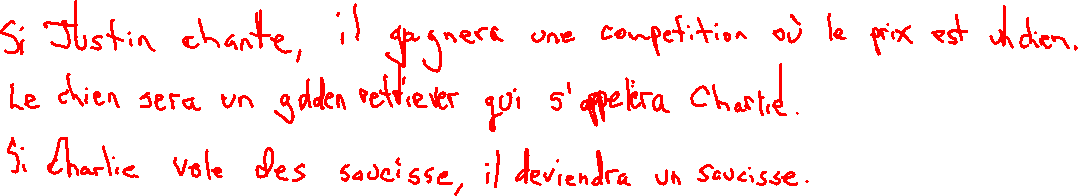 Si Justin chante, il gagnera une competition où le prix est un chien.
Le chien sera un golden retriever qui s'appelera Charlie.
Si Charlie vole des saucisse, il deviendra un saucisse.